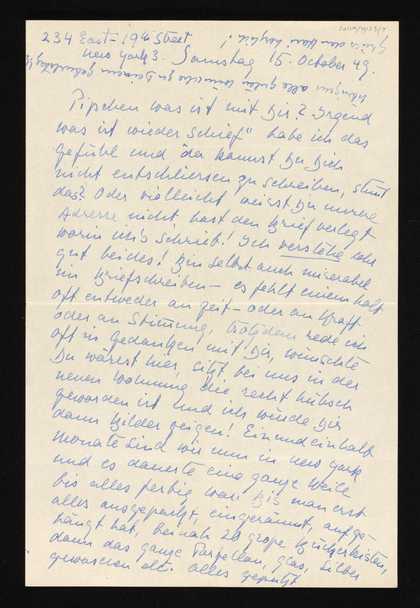 234 East-19th Street
New York 3. Samstag 15. October 49.
Pipschen was ist mit Dir? Irgend
was ist wieder "schief" habe ich das
Gefühl und da kannst Du Dich
nicht entschliessen zu schreiben, stimt
das? Oder vielleicht weisst Du unsere
Adresse nicht hast den Brief verlegt
worin ich's schrieb! Ich verstehe sehr
gut beides! Bin selbst auch miserabel
im Briefschreiben – es fehlt einem halt
oft entweder an Zeit – oder an Kraft
oder an Stimmung, trotzdem rede ich
oft in Gedanken mit Dir, wünschte
Du wärest hier, sitzt bei uns in der
neuen Wohnung die recht hübsch
geworden ist und ich würde Dir
dann Bilder zeigen! Ein und einhalb
Monate sind wir nun in New York
und es dauerte eine ganze Weile
bis alles fertig war. Bis man erst
alles ausgepackt, eingeräumt, aufge-
hängt hat, beinah 20 grosse Bücherkisten,
dann das ganze Porzellan, Glas, Silber
gewaschen etc. alles geputzt